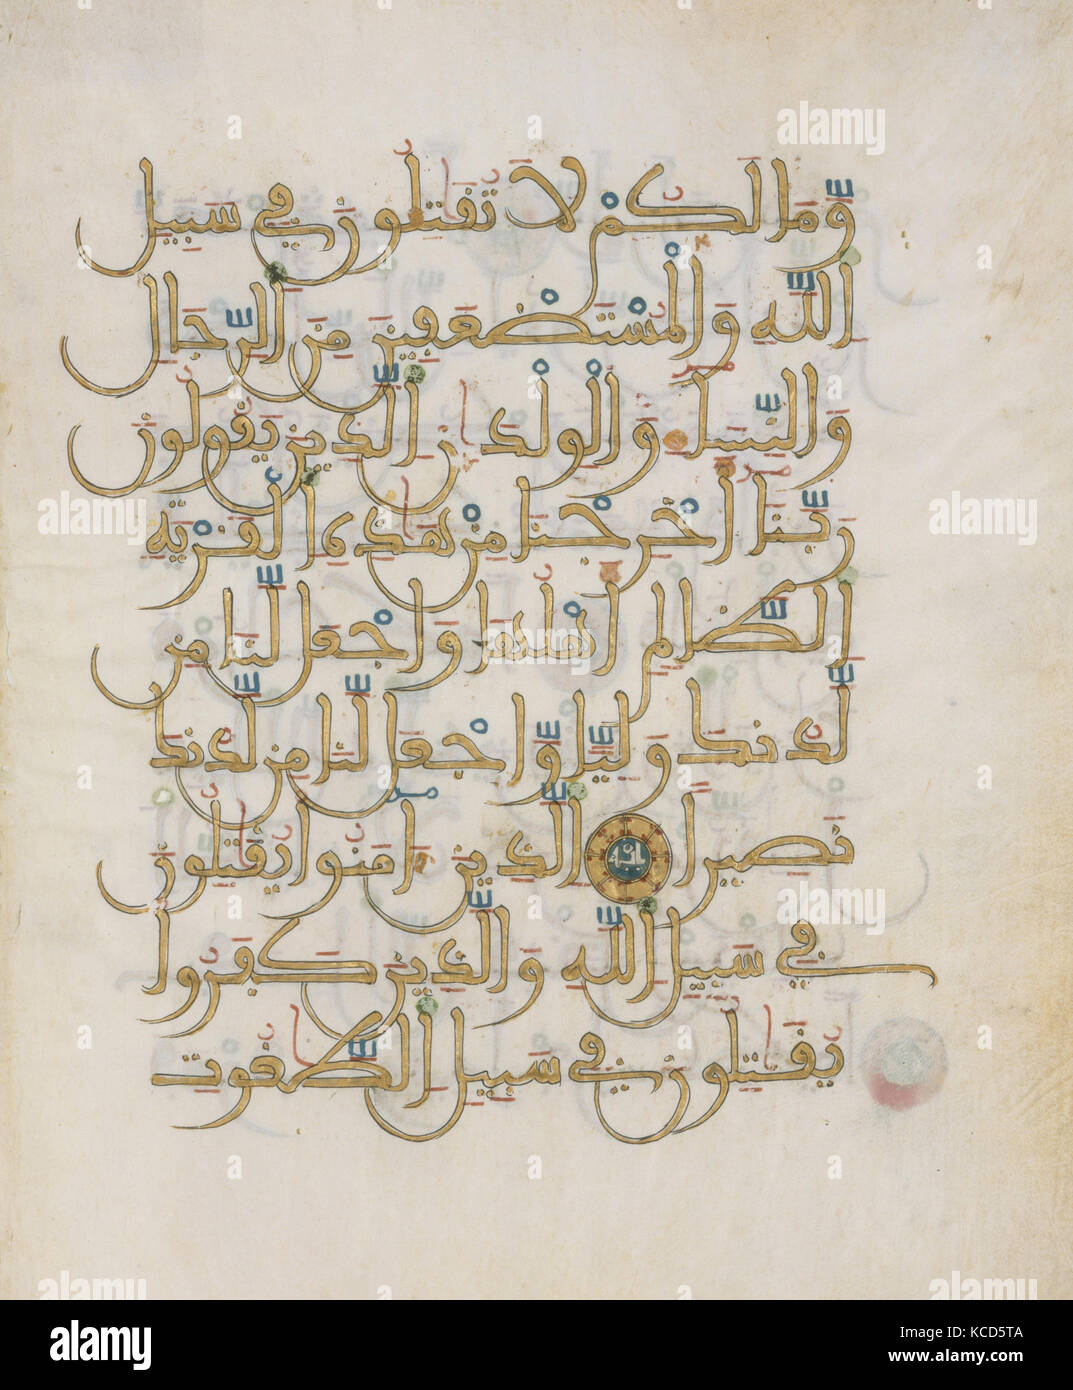 وَمَا لَكُمْ لَا تُقَٰتِلُونَ فِي سَبِيلِ
اِ۬للَّهِ وَالْمُسْتَضْعَفِينَ مِنَ اَ۬لرِّجَالِ
وَالنِّسَآءِ وَالْوِلْدَٰنِ اِ۬لذِينَ يَقُولُونَ
رَبَّنَآ أَخْرِجْنَا مِنْ هَٰذِهِ اِ۬لْقَرْيَةِ
اِ۬لظَّالِمِ أَهْلُهَا وَاجْعَل لَّنَا مِن
لَّدُنكَ وَلِيّاً وَّاجْعَل لَّنَا مِن لَّدُنكَ
نَصِيراً اَ۬لذِينَ ءَامَنُوا يُقَٰتِلُونَ
فِي سَبِيلِ اِ۬للَّهِ وَالذِينَ كَفَرُوا
يُقَٰتِلُونَ فِي سَبِيلِ اِ۬لطَّٰغُوتِ
alamy
alamy
Image ID: KCD5TA
www.alamy.com